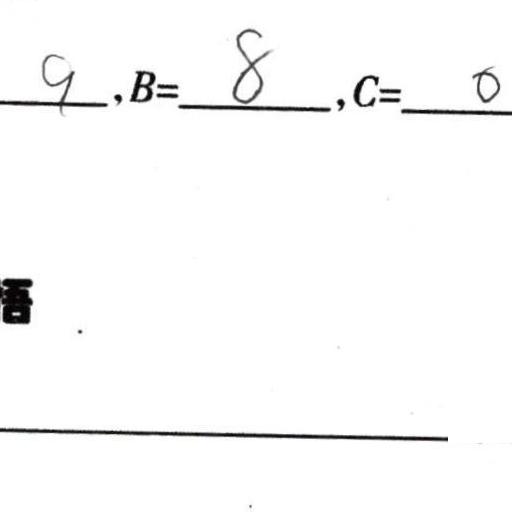 9, B= 8, C= 0
悟